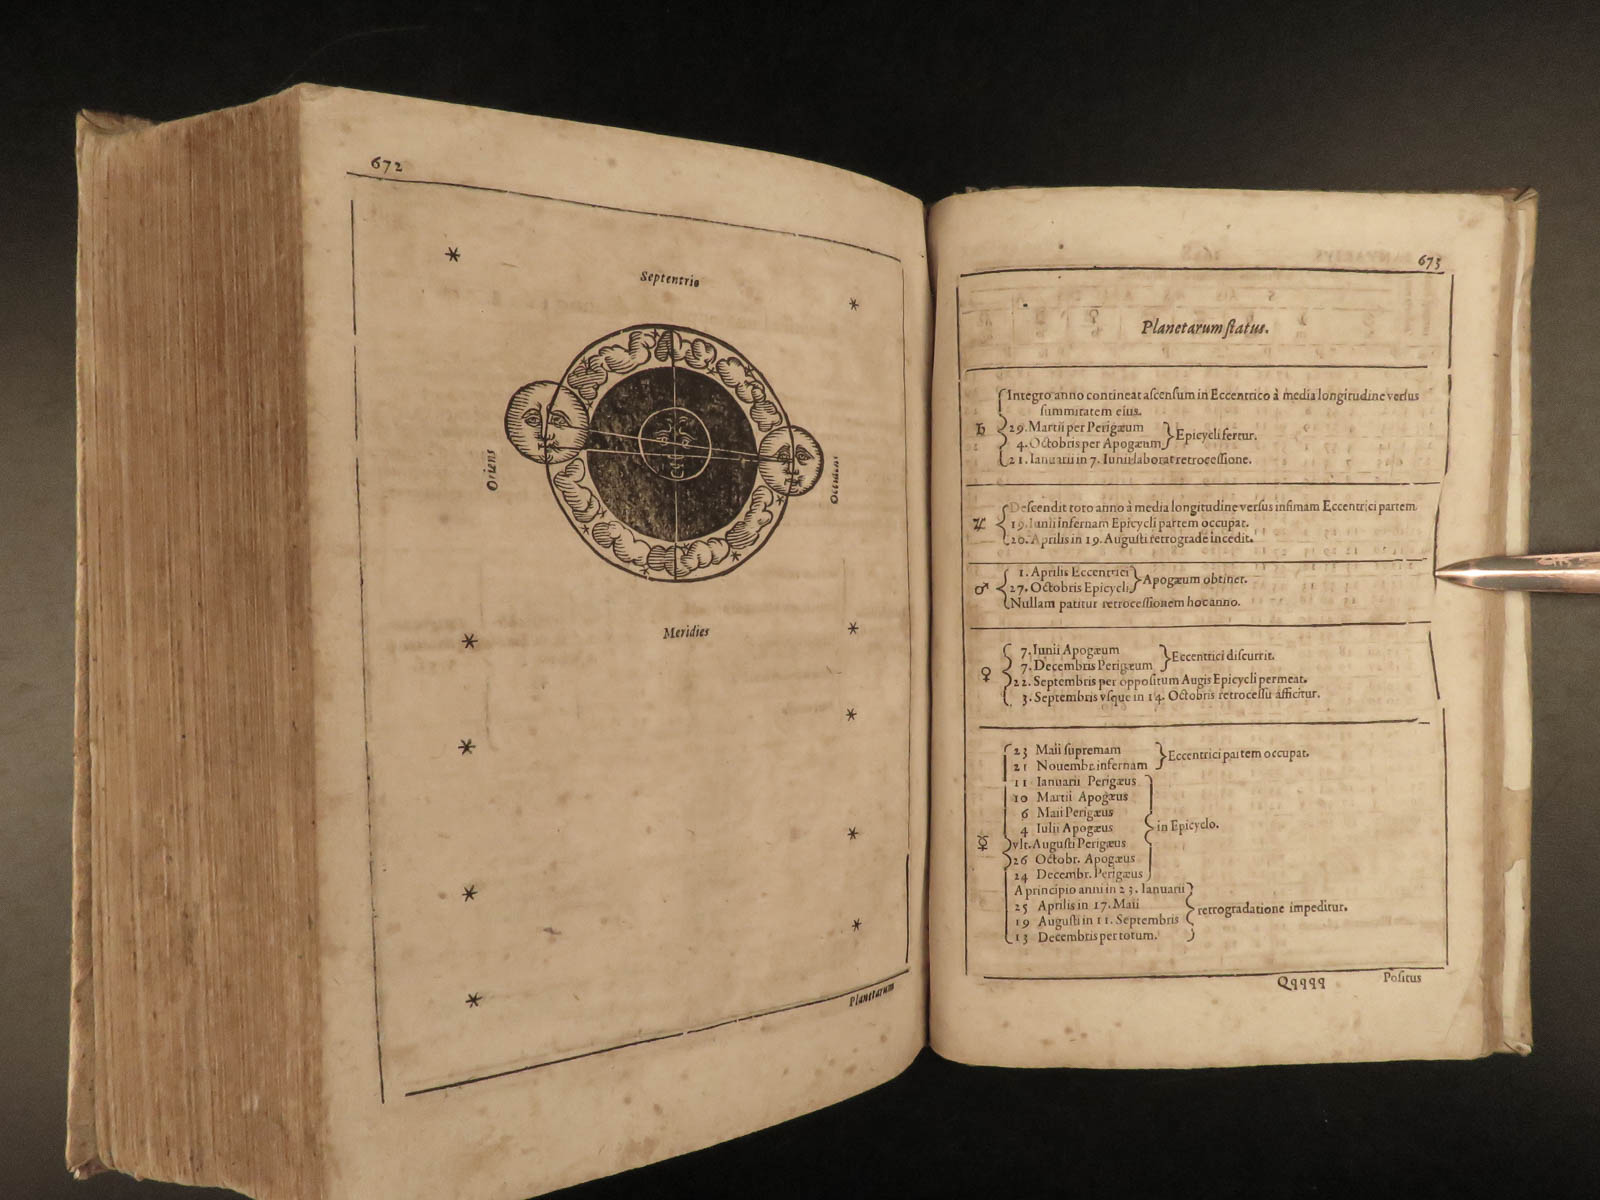 672
Septentrio
Oriens
Occidens
Meridies
Planetarum
673
Planetarum ſtatus.
Integro anno contineat aſcenſum in Eccentrico à media longitudine verſus
ſummitatem eius.
♄ 29. Martii per Perigæum
4. Octobris per Apogæum } Epicycli fertur.
21. Ianuarii in 7. Iunii laborat retroceſſione.
Deſcendit toto anno à media longitudine verſus infimam Eccentrici partem
♃ 19. Iunii infernam Epicycli partem occupat.
20. Aprilis in 19. Auguſti retrograde incedit.
1. Aprilis Eccentrici
♂ 27. Octobris Epicycli } Apogæum obtinet.
Nullam patitur retroceſſionem hoc anno.
7. Iunii Apogæum
7. Decembris Perigæum } Eccentrici diſcurrit.
♀ 22. Septembris per oppoſitum Augis Epicycli permeat.
3. Septembris vſque in 14. Octobris retroceſſu afficitur.
23 Maii ſupremam
21 Nouembr. infernam } Eccentrici partem occupat.
11 Ianuarii Perigæus
10 Martii Apogæus
6 Maii Perigæus
4 Iulii Apogæus } in Epicyclo.
☿ vlt. Auguſti Perigæus
26 Octobr. Apogæus
24 Decembr. Perigæus
A principio anni in 23. Ianuarii
25 Aprilis in 17. Maii } retrogradatione impeditur.
19 Auguſti in 11. Septembris
13 Decembris per totum.
Qqqqq Poſitus